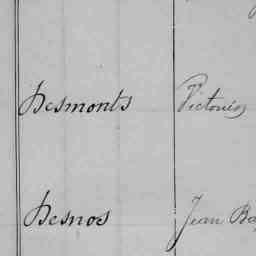 Desmonts Victorin
Desnos Jean Ba